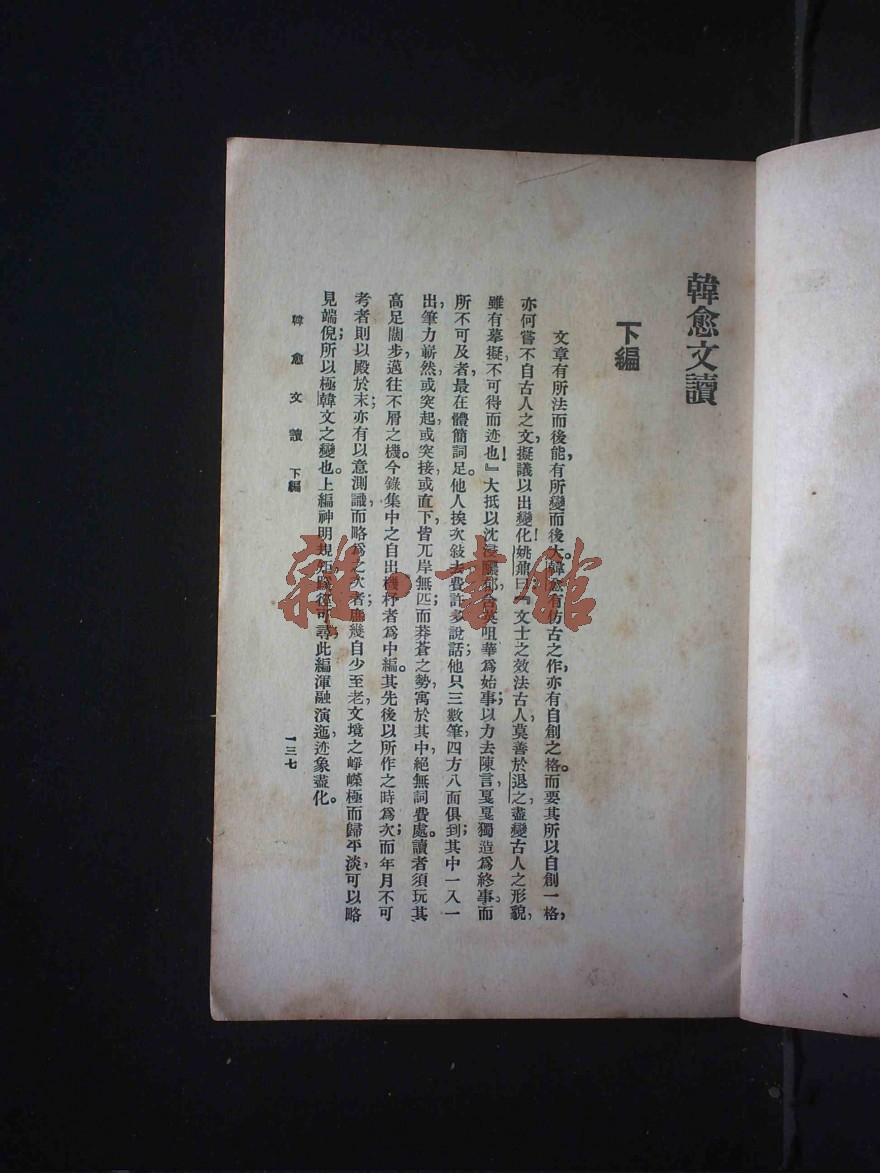 韓愈文讀
下編
文章有所法而後能，有所變而後大。韓愈有仿古之作，亦有自創之格。而要其所以自創一格，
亦何嘗不自古人之文，擬議以出變化！姚鼐曰：『文士之效法古人，莫善於退之，盡變古人之形貌，
雖有摹擬，不可得而迹也！』大抵以沈浸醲郁含英咀華爲始事；以力去陳言，戛戛獨造爲終事。而
所不可及者，最在體簡詞足。他人挨次敍去，費許多說話；他只三數筆，四方八面俱到；其中一入一
出，筆力嶄然，或突起，或突接，或直下，皆兀岸無匹；而莽蒼之勢，寓於其中，絕無詞費處。讀者須玩其
高足闊步，邁往不屑之機。今錄集中之自出機杼者爲中編。其先後以所作之時爲次；而年月不可
考者，則以殿於末；亦有以意測識，而略爲之次者；庶幾自少至老，文境之崢嶸極而歸平淡，可以略
見端倪；所以極韓文之變也。上編神明規矩，蹊徑可尋；此編渾融演迤，迹象盡化。
韓愈文讀　下編
一三七
雜·書館